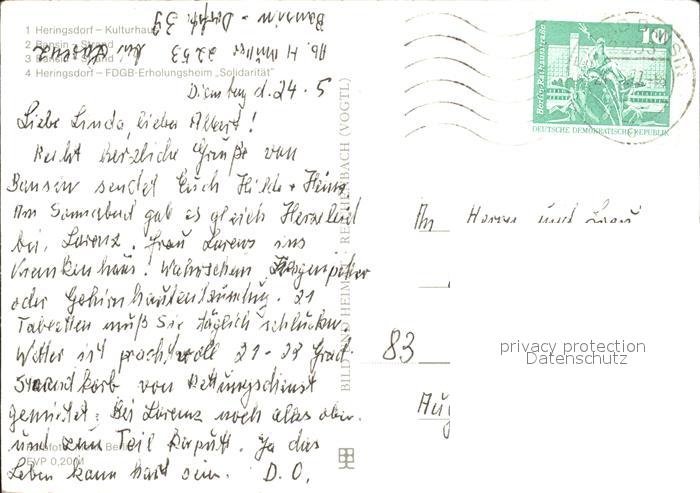 1 Heringsdorf – Kulturhaus
2 Bansin – Strand
3 Bansin – Strand
4 Heringsdorf – FDGB-Erholungsheim „Solidarität"
Ab. H. Müller 2253
Bansin - Dorfstr. 39
Dienstag d. 24. 5
Liebe Linda, lieber Albert!
Recht herzliche Grüße von
Bansin sendet Euch Hilde + Heinz
Am Sonnabend gab es gleich Herzeleid
bei Lorenz. Frau Lorenz ins
Krankenhaus! Wahrschein
oder Gehirnhautentzündung. 21
Tabletten muß Sie täglich schlucken
Wetter ist prachtvoll 21-23 Grad
Strandkorb von Rettungsdienst
gemietet. Bei Lorenz noch alles oben
und zum Teil kaputt. Ja das
Leben kann hart sein. D. O.
EVP 0,20 M
BILD UND HEIMAT · REICHENBACH (VOGTL)
Berlin-Rathausstraße
10
DEUTSCHE DEMOKRATISCHE REPUBLIK
BANSIN
An Herrn und Frau
83
privacy protection
Datenschutz